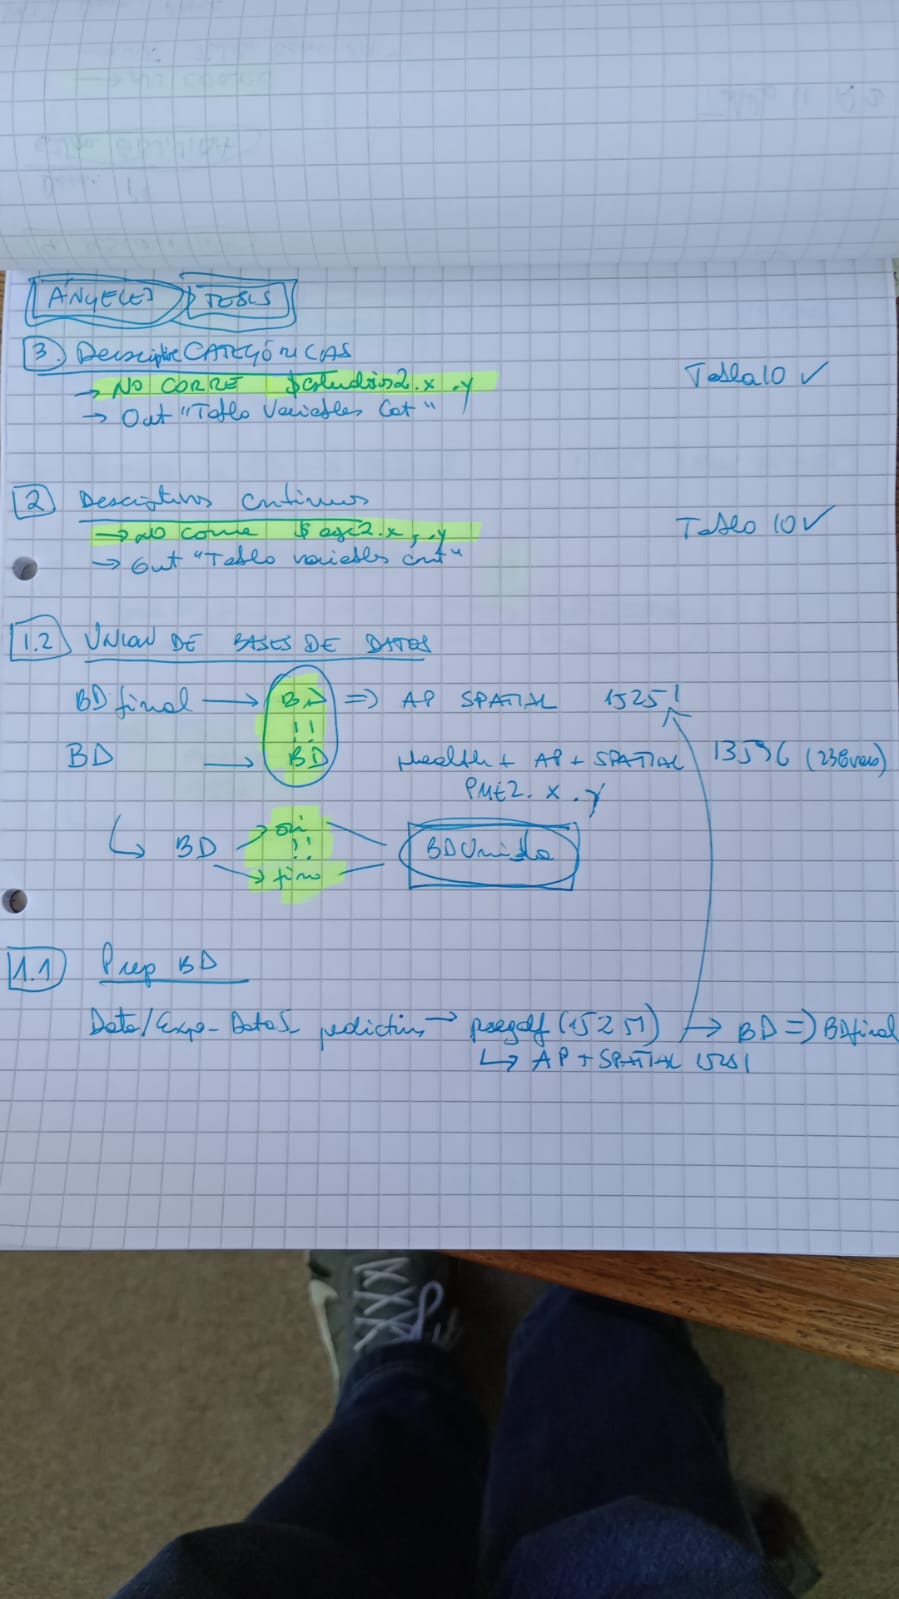 ANGELES TESIS
3. Descriptic CATEGÓRICAS
→ NO CORRE $estudios2.x .y
Tabla 10 ✓
→ Out "Tabla Variables Cat"
2 Descriptivos Continuas
→ no corre $age2.x, .y
Tabla 10 ✓
→ Out "Tabla variables cont"
1.2 UNION DE BASES DE DATOS
BD final → BD ⇒ AP SPATIAL 15251
!!
BD → BD Health + AP + SPATIAL 13596 (238vars)
PM2.x .y
↳ BD → ori
!! BD Unida
→ fino
1.1 Prep BD
Data/Expo-Data predictins → (15251) → BD ⇒ BDfinal
↳ AP + SPATIAL 15251